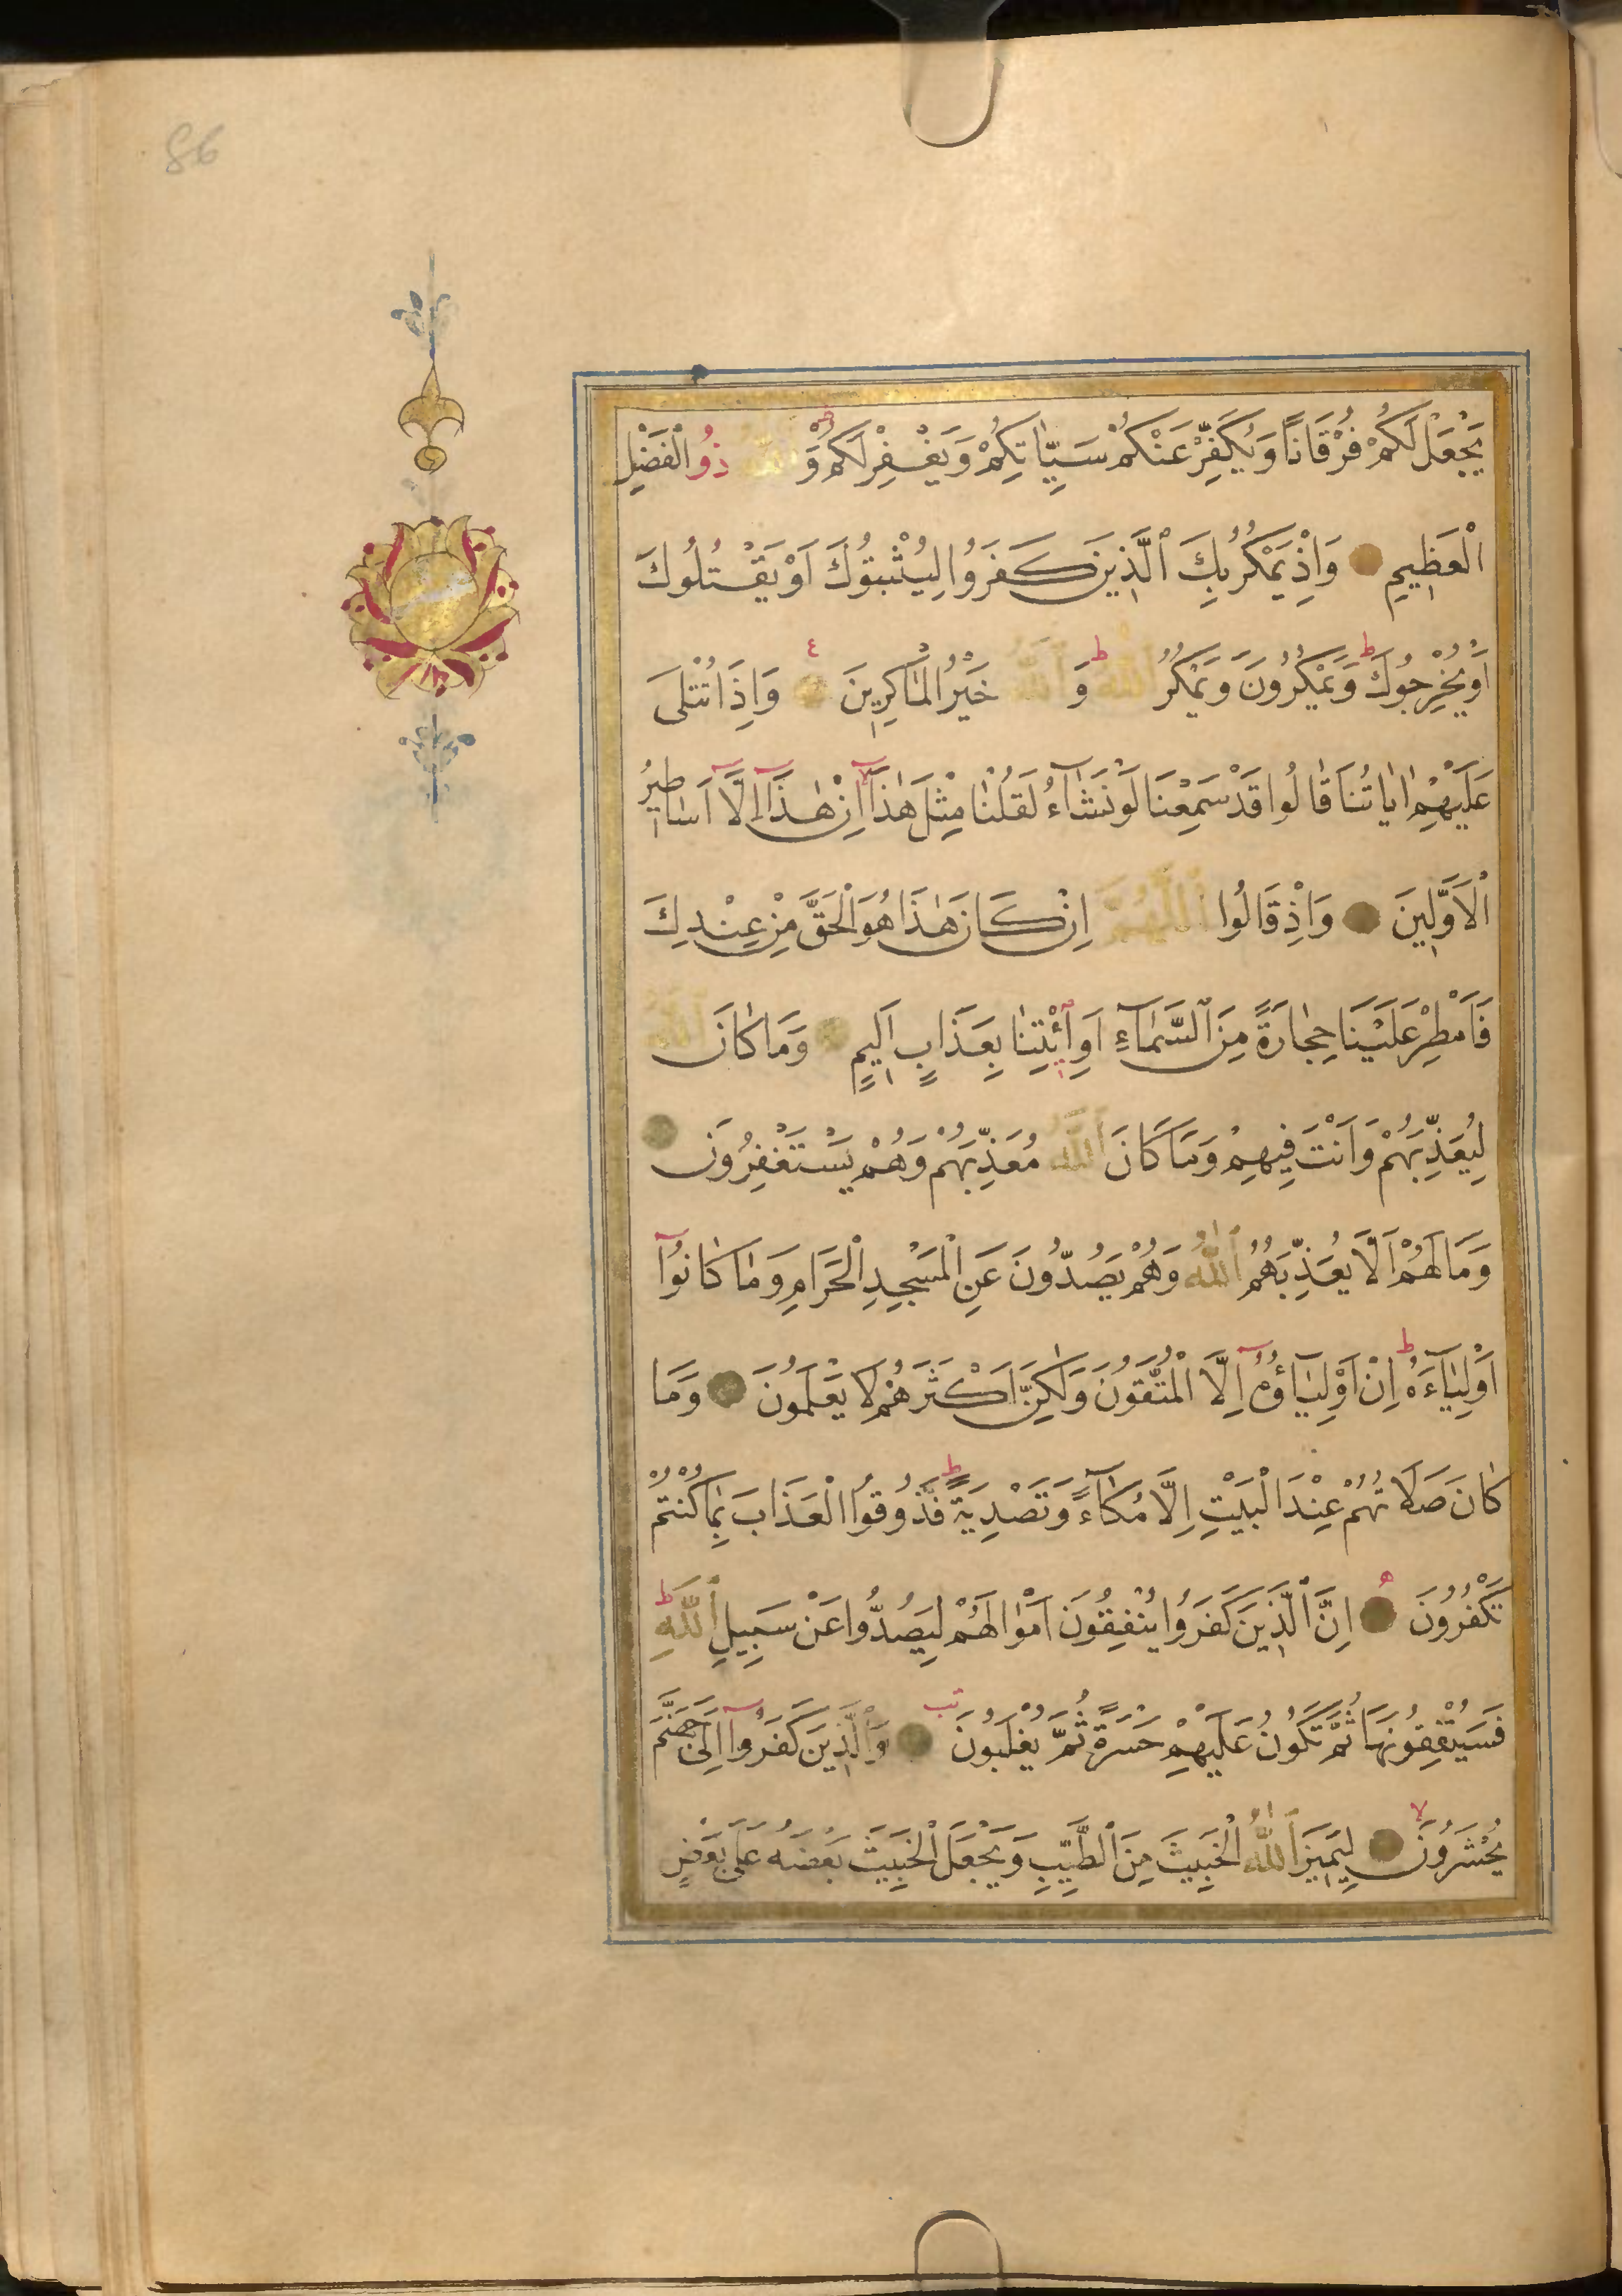 86
يَجْعَلْ لَكُمْ فُرْقَانًا وَيُكَفِّرْ عَنْكُمْ سَيِّاٰتِكُمْ وَيَغْفِرْ لَكُمْ وَاللّٰهُ ذُو الْفَضْلِ
الْعَظِيمِ وَاِذْ يَمْكُرُ بِكَ الَّذِينَ كَفَرُوا لِيُثْبِتُوكَ اَوْ يَقْتُلُوكَ
اَوْ يُخْرِجُوكَ ط وَيَمْكُرُونَ وَيَمْكُرُ اللّٰهُ ط وَاللّٰهُ خَيْرُ الْمَاكِرِينَ وَاِذَا تُتْلَى
عَلَيْهِمْ اٰيَاتُنَا قَالُوا قَدْ سَمِعْنَا لَوْ نَشَآءُ لَقُلْنَا مِثْلَ هٰذَآ لا اِنْ هٰذَآ اِلَّآ اَسَاطِيرُ
الْاَوَّلِينَ وَاِذْ قَالُوا اللّٰهُمَّ اِنْ كَانَ هٰذَا هُوَ الْحَقَّ مِنْ عِنْدِكَ
فَاَمْطِرْ عَلَيْنَا حِجَارَةً مِنَ السَّمَآءِ اَوِ ائْتِنَا بِعَذَابٍ اَلِيمٍ وَمَا كَانَ اللّٰهُ
لِيُعَذِّبَهُمْ وَاَنْتَ فِيهِمْ وَمَا كَانَ اللّٰهُ مُعَذِّبَهُمْ وَهُمْ يَسْتَغْفِرُونَ
وَمَا لَهُمْ اَلَّا يُعَذِّبَهُمُ اللّٰهُ وَهُمْ يَصُدُّونَ عَنِ الْمَسْجِدِ الْحَرَامِ وَمَا كَانُوآ
اَوْلِيَآءَهُ ط اِنْ اَوْلِيَآؤُهُ اِلَّا الْمُتَّقُونَ وَلٰكِنَّ اَكْثَرَهُمْ لَا يَعْلَمُونَ وَمَا
كَانَ صَلَاتُهُمْ عِنْدَ الْبَيْتِ اِلَّا مُكَآءً وَتَصْدِيَةً ط فَذُوقُوا الْعَذَابَ بِمَا كُنْتُمْ
تَكْفُرُونَ اِنَّ الَّذِينَ كَفَرُوا يُنْفِقُونَ اَمْوَالَهُمْ لِيَصُدُّوا عَنْ سَبِيلِ اللّٰهِ ط
فَسَيُنْفِقُونَهَا ثُمَّ تَكُونُ عَلَيْهِمْ حَسْرَةً ثُمَّ يُغْلَبُونَ وَالَّذِينَ كَفَرُوآ اِلَى جَهَنَّمَ
يُحْشَرُونَ لا لِيَمِيزَ اللّٰهُ الْخَبِيثَ مِنَ الطَّيِّبِ وَيَجْعَلَ الْخَبِيثَ بَعْضَهُ عَلَى بَعْضٍ